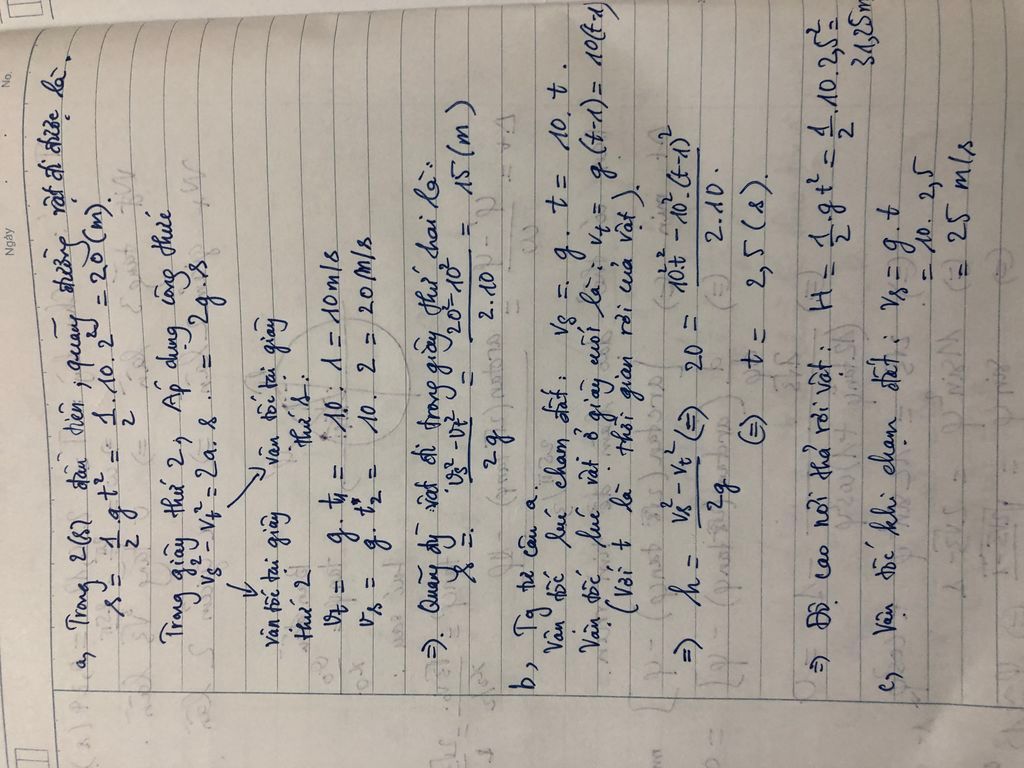 No.
Ngày
a, Trong 2(s) đầu tiên, quãng đường vật đi được là.
s = 1/2 g t² = 1/2 . 10 . 2² = 20 (m).
Trong giây thứ 2, Áp dụng công thức
vs² - vt² = 2a.s = 2g.s
vận tốc tại giây thứ 2
vận tốc tại giây thứ 1.
vt = g . t1 = 10 . 1 = 10 m/s
vs = g . t2 = 10 . 2 = 20 m/s
=> Quãng đg vật đi trong giây thứ hai là:
s = (vs² - vt²)/2g = (20² - 10²)/2.10 = 15 (m)
b, Tg tự câu a.
Vận tốc lúc chạm đất: vs = g . t = 10 . t .
Vận tốc lúc vật ở giây cuối là: vt = g(t-1) = 10(t-1)
(Với t là thời gian rơi của vật).
=> h = (vs² - vt²)/2g (=) 20 = (10².t² - 10².(t-1)²)/2.10.
(=) t = 2,5 (s).
=> Độ cao nơi thả rơi vật: H = 1/2 . g t² = 1/2 . 10 . 2,5² =
31,25m
c, Vận tốc khi chạm đất: vs = g . t
= 10 . 2,5
= 25 m/s